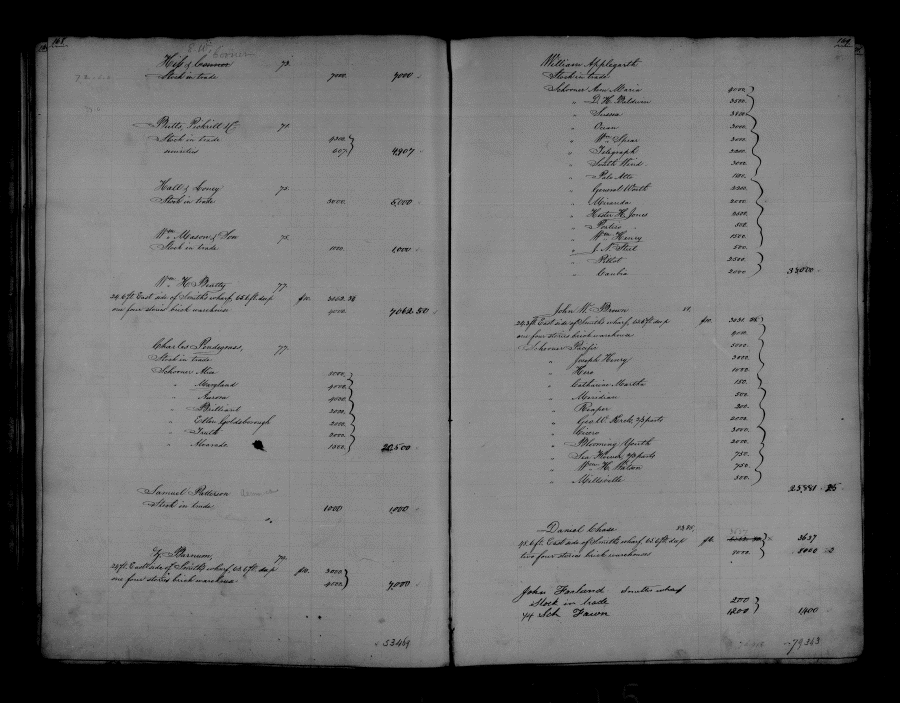 168
E. W. Conner
Hiss & Conner 73.
Stock in trade 7000. 7000
Butts, Pickrill & Co 71.
Stock in trade 4300.
securities 607. 4907
Hall & Loney 75.
Stock in trade 5000. 5,000
Wm Mason & Son 75.
Stock in trade 1000. 1,000
Wm H. Beatty 77.
24.6 ft. East side of Smith's wharf, 65.6 ft. deep fm.
one four stories brick warehouse 4000. 7062 50
Charles Pendegrass, 77.
Stock in trade
Schooner Alice 1000.
" Maryland 4000.
" Aurora 4000.
" Brilliant
" Ellen Goldsborough 2000.
" Truth 2000.
" Alvarado 1500. 20,500
Samuel Patterson
Stock in trade 1000 1,000
Z. Barnum, 79.
24 ft. East side of Smith's wharf, 65.6 ft. deep fm. 3000.
one four stories brick warehouse 4000. 7,000
53469
169
William Applegarth
Stock in trade
Schooner Ann Maria 4000.
" D. H. Baldwin 3500.
" Sussex
" Ocean 3000.
" Wm Spear 3000.
" Telegraph
" South Wind 3000.
" Palo Alto
" General Worth
" Miranda 2000.
" Hester H. Jones 2500.
" Porters 500.
" Wm Henry 1500.
" J. N. Steel 500.
" 2500.
" Cambria 2000. 35000
John W. Brown 81.
24.3 ft East side of Smith's wharf, 65.6 ft. deep fm. 3031. 25
one four stories brick warehouse
Schooner Pacific 5000.
" Joseph Henry 3000.
" Hero
" Catharine Martha 150.
" Meridian 500.
" Reaper 300.
" Geo W. 2/3 parts 2000.
" Cicero 3000.
" Blooming Youth 2000.
" Sea Flower 2/3 parts 750.
" Wm H. Watson 750.
" Millville 500.
25,881 25
Daniel Chase 83.85.
45.6 ft. East side of Smith's wharf, 65.6 ft. deep fm. 3637
two four stories brick warehouses 8000. 8000
John Forland Smiths wharf
Stock in trade 200
44 Sch Fawn 1200 1400
79343